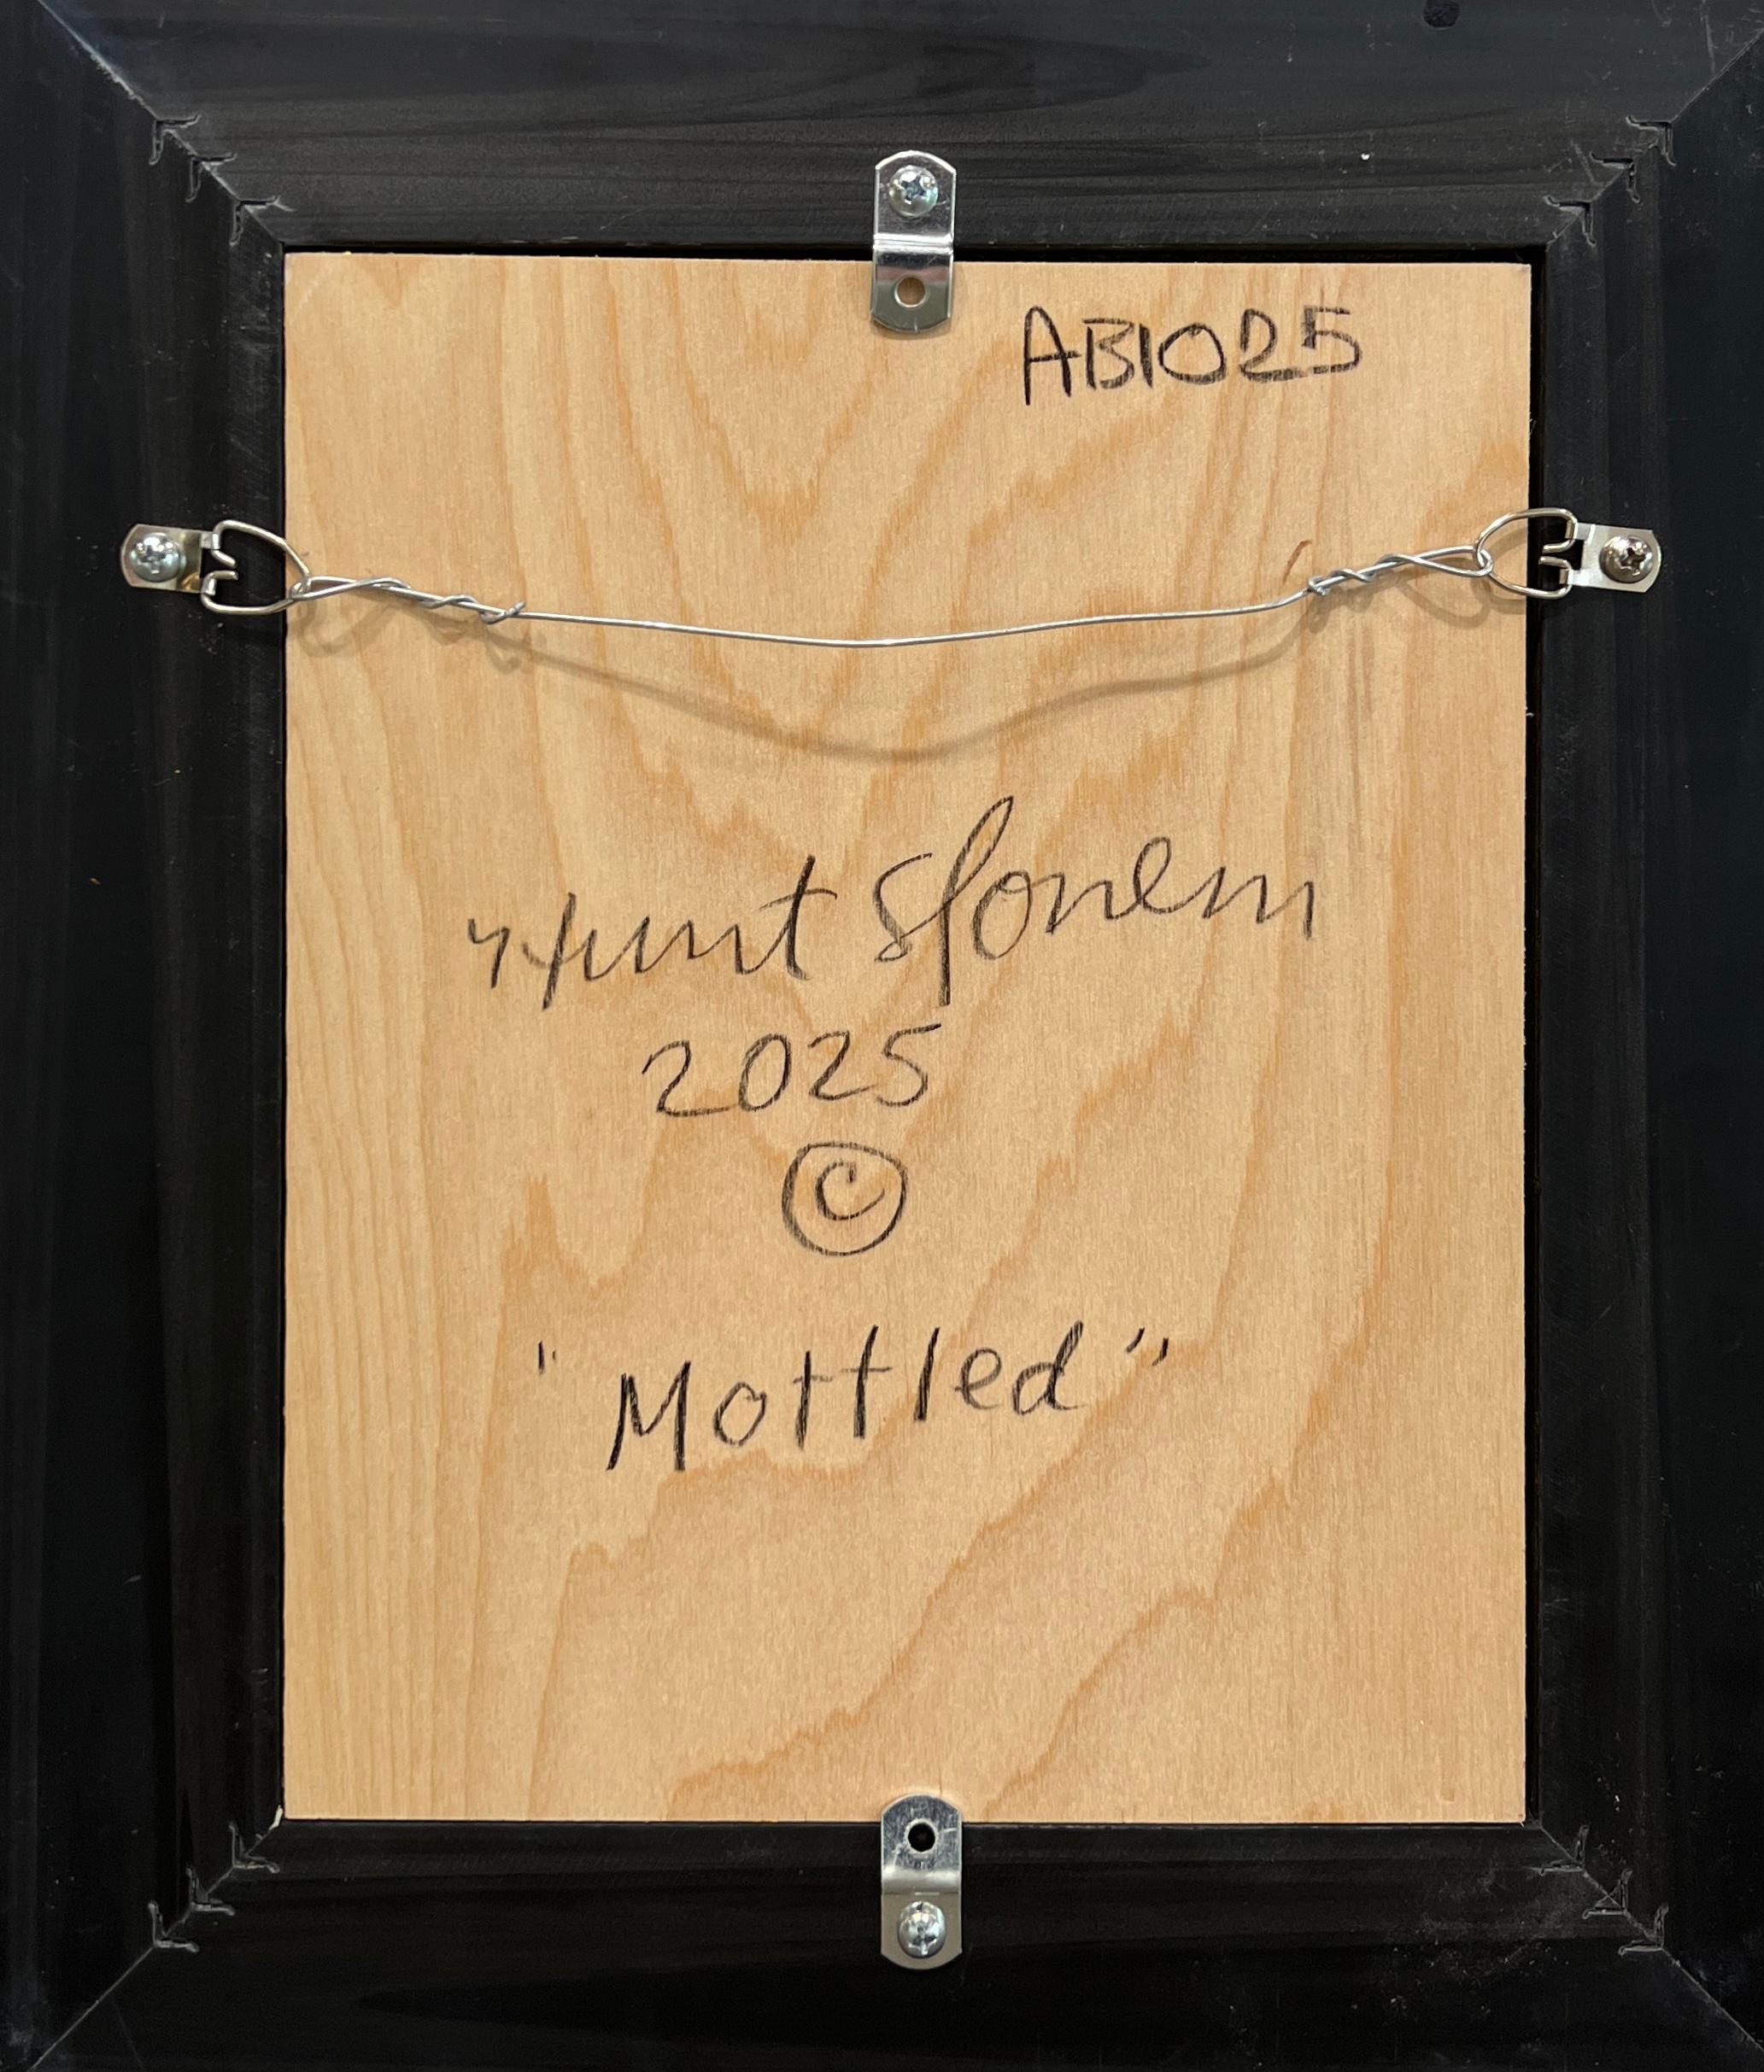 AB1025
Hunt Slonem
2025
©
"Mottled"